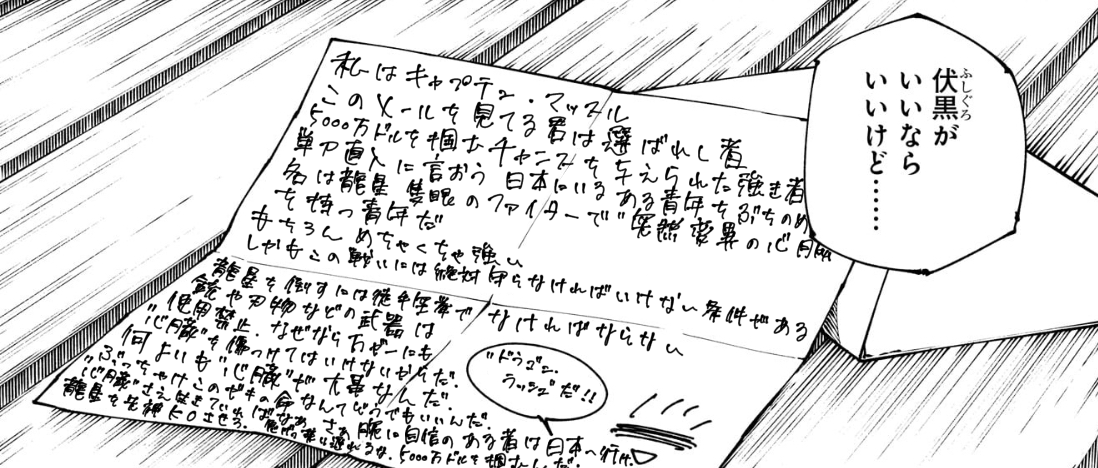 伏黒が
ふしぐろ
いいなら
いいけど……
私はキャプテン・マッスル
このメールを見てる君は選ばれし者
5000万ドルを掴むチャンスを与えられた強き者
単刀直入に言おう 日本にいるある青年をぶちのめ
名は龍星 隻眼のファイターで"突然変異の心臓
を持つ青年だ
もちろんめちゃくちゃ強い
しかもこの戦いには絶対守らなければいけない条件がある
龍星を倒すには徒手空拳で なければならない
銃や刃物などの武器は
使用禁止.なぜなら万が一にも
"心臓"を傷つけてはいけないからだ.
何よりも"心臓"が大事なんだ.
ぶっちゃけこのガキの命なんてどうでもいいんだ.
"心臓"さえ生きていればなあ さあ腕に自信のある者は日本へ行け.
龍星を先に KOさせろ. 5000万ドルを掴むんだ.
"ドラゴン.
ラッシュ"だ!!